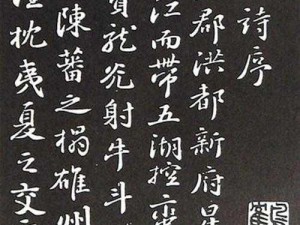 詩序
郡洪都新府星
江而帶五湖控蠻
龍光射牛斗
陳蕃之榻雄州
枕夷夏之交